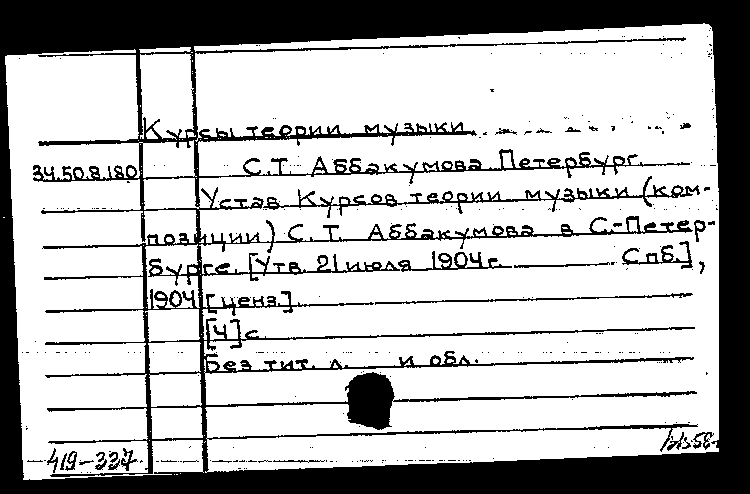 Курсы теории музыки
34.50.8.180 С.Т. Аббакумова Петербург.
Устав Курсов теории музыки (ком-
позиции) С.Т. Аббакумова в С.-Петер-
бурге. [Утв. 21 июля 1904 г. Спб.],
1904 [ценз.].
[4] с.
Без тит. л. и обл.
419-337